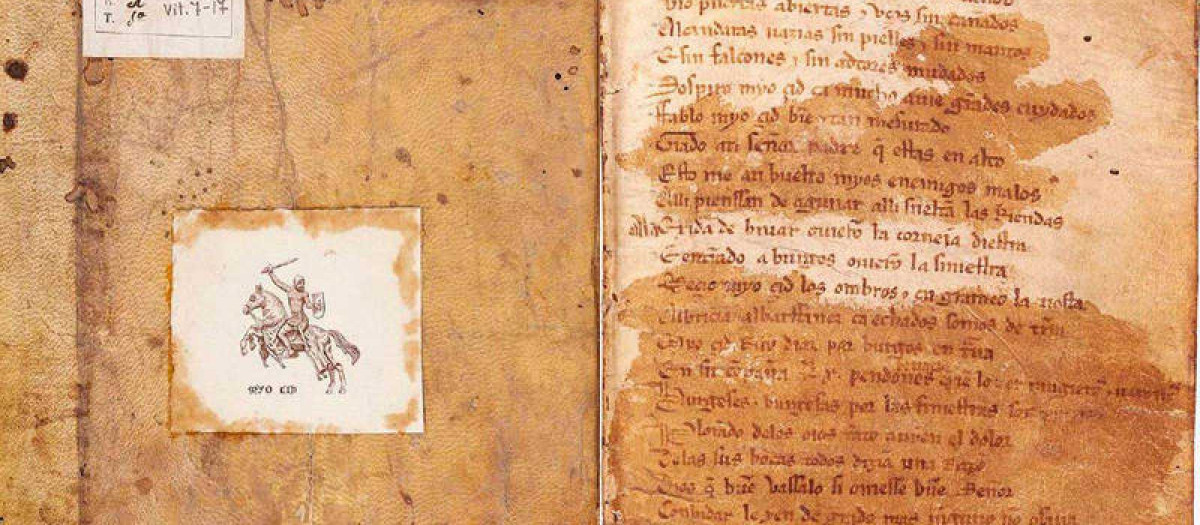 Vit.7-17
T.
MYO CID
Vio puertas abiertas ⁊ vços sin cañados
Alcandaras uazias sin pielles ⁊ sin mantos
E sin falcones ⁊ sin adtores mudados
Sospiro myo çid ca mucho auie grãdes cuydados
Fablo myo çid biẽ ⁊ tan mesurado
Grado ati señor padre q̃ estas en alto
Esto me an buelto myos enemigos malos
Alli pienssan de aguijar alli sueltã las Riendas
Ala exida de biuar ouierõ la corneja diestra
E entrãdo a burgos ouierõ la siniestra
Meçio myo çid los ombros ⁊ en grameo la tiesta
Albricia albarffanez ca echados somos de tierra
Myo çid Ruy diaz por burgos en traua
En su cõpaña Lx pendones
Burgeses ⁊ burgesas por las finiestras
Plorãdo delos oios tãto auyen el dolor
Delas sus bocas todos dizian una Razõ
Dios q̃ buẽ vassalo si ouiesse buẽ Señor
Conbidar le yen de grado mas ninguno no osaua